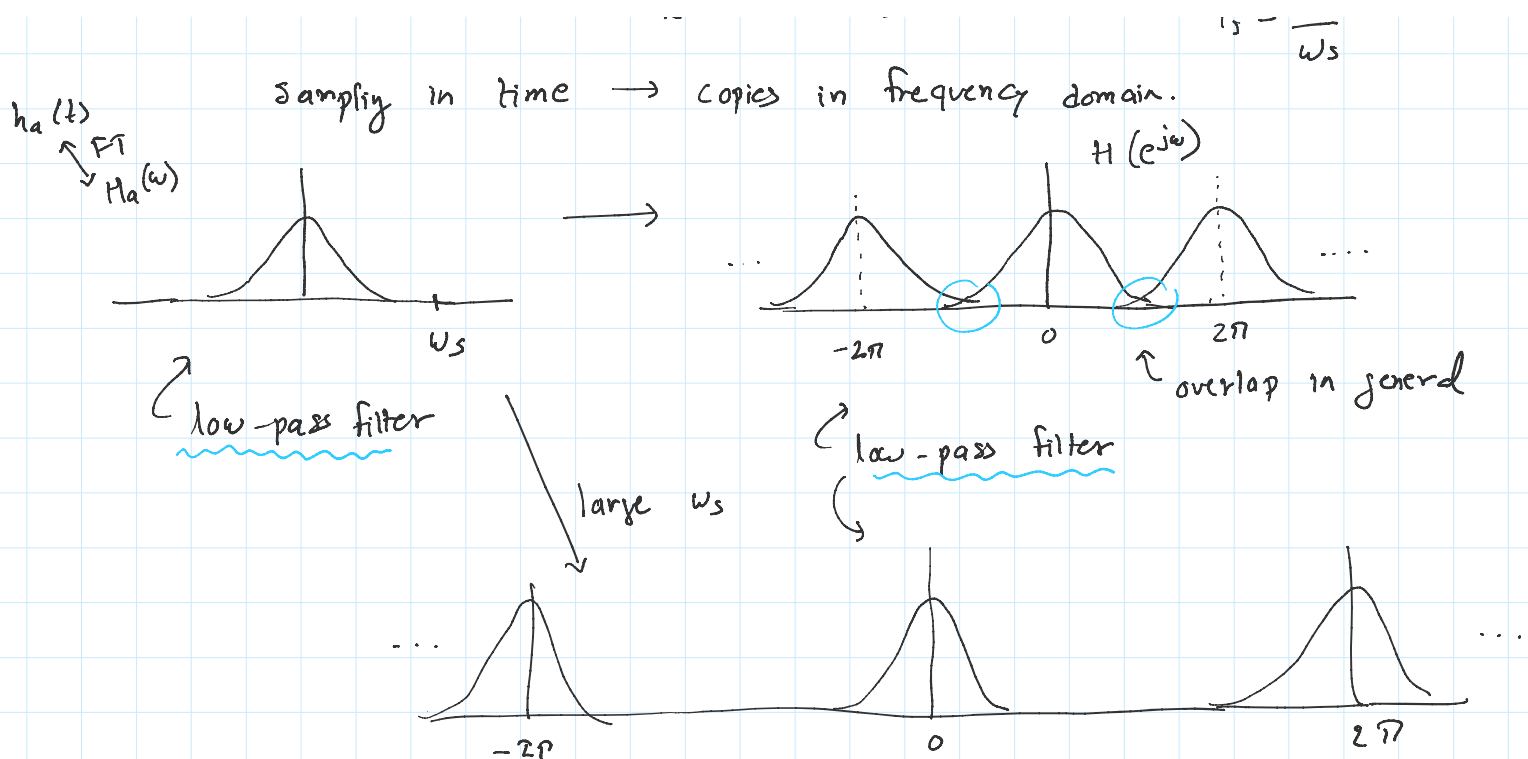 ωs
sampliy in time → copies in frequency domain.
ha(t)
FT
Ha(ω)
H(e^jω)
... ....
ωs
-2π 0 2π
overlap in generd
low-pass filter
low-pass filter
large ωs
... ...
-2π 0 2π